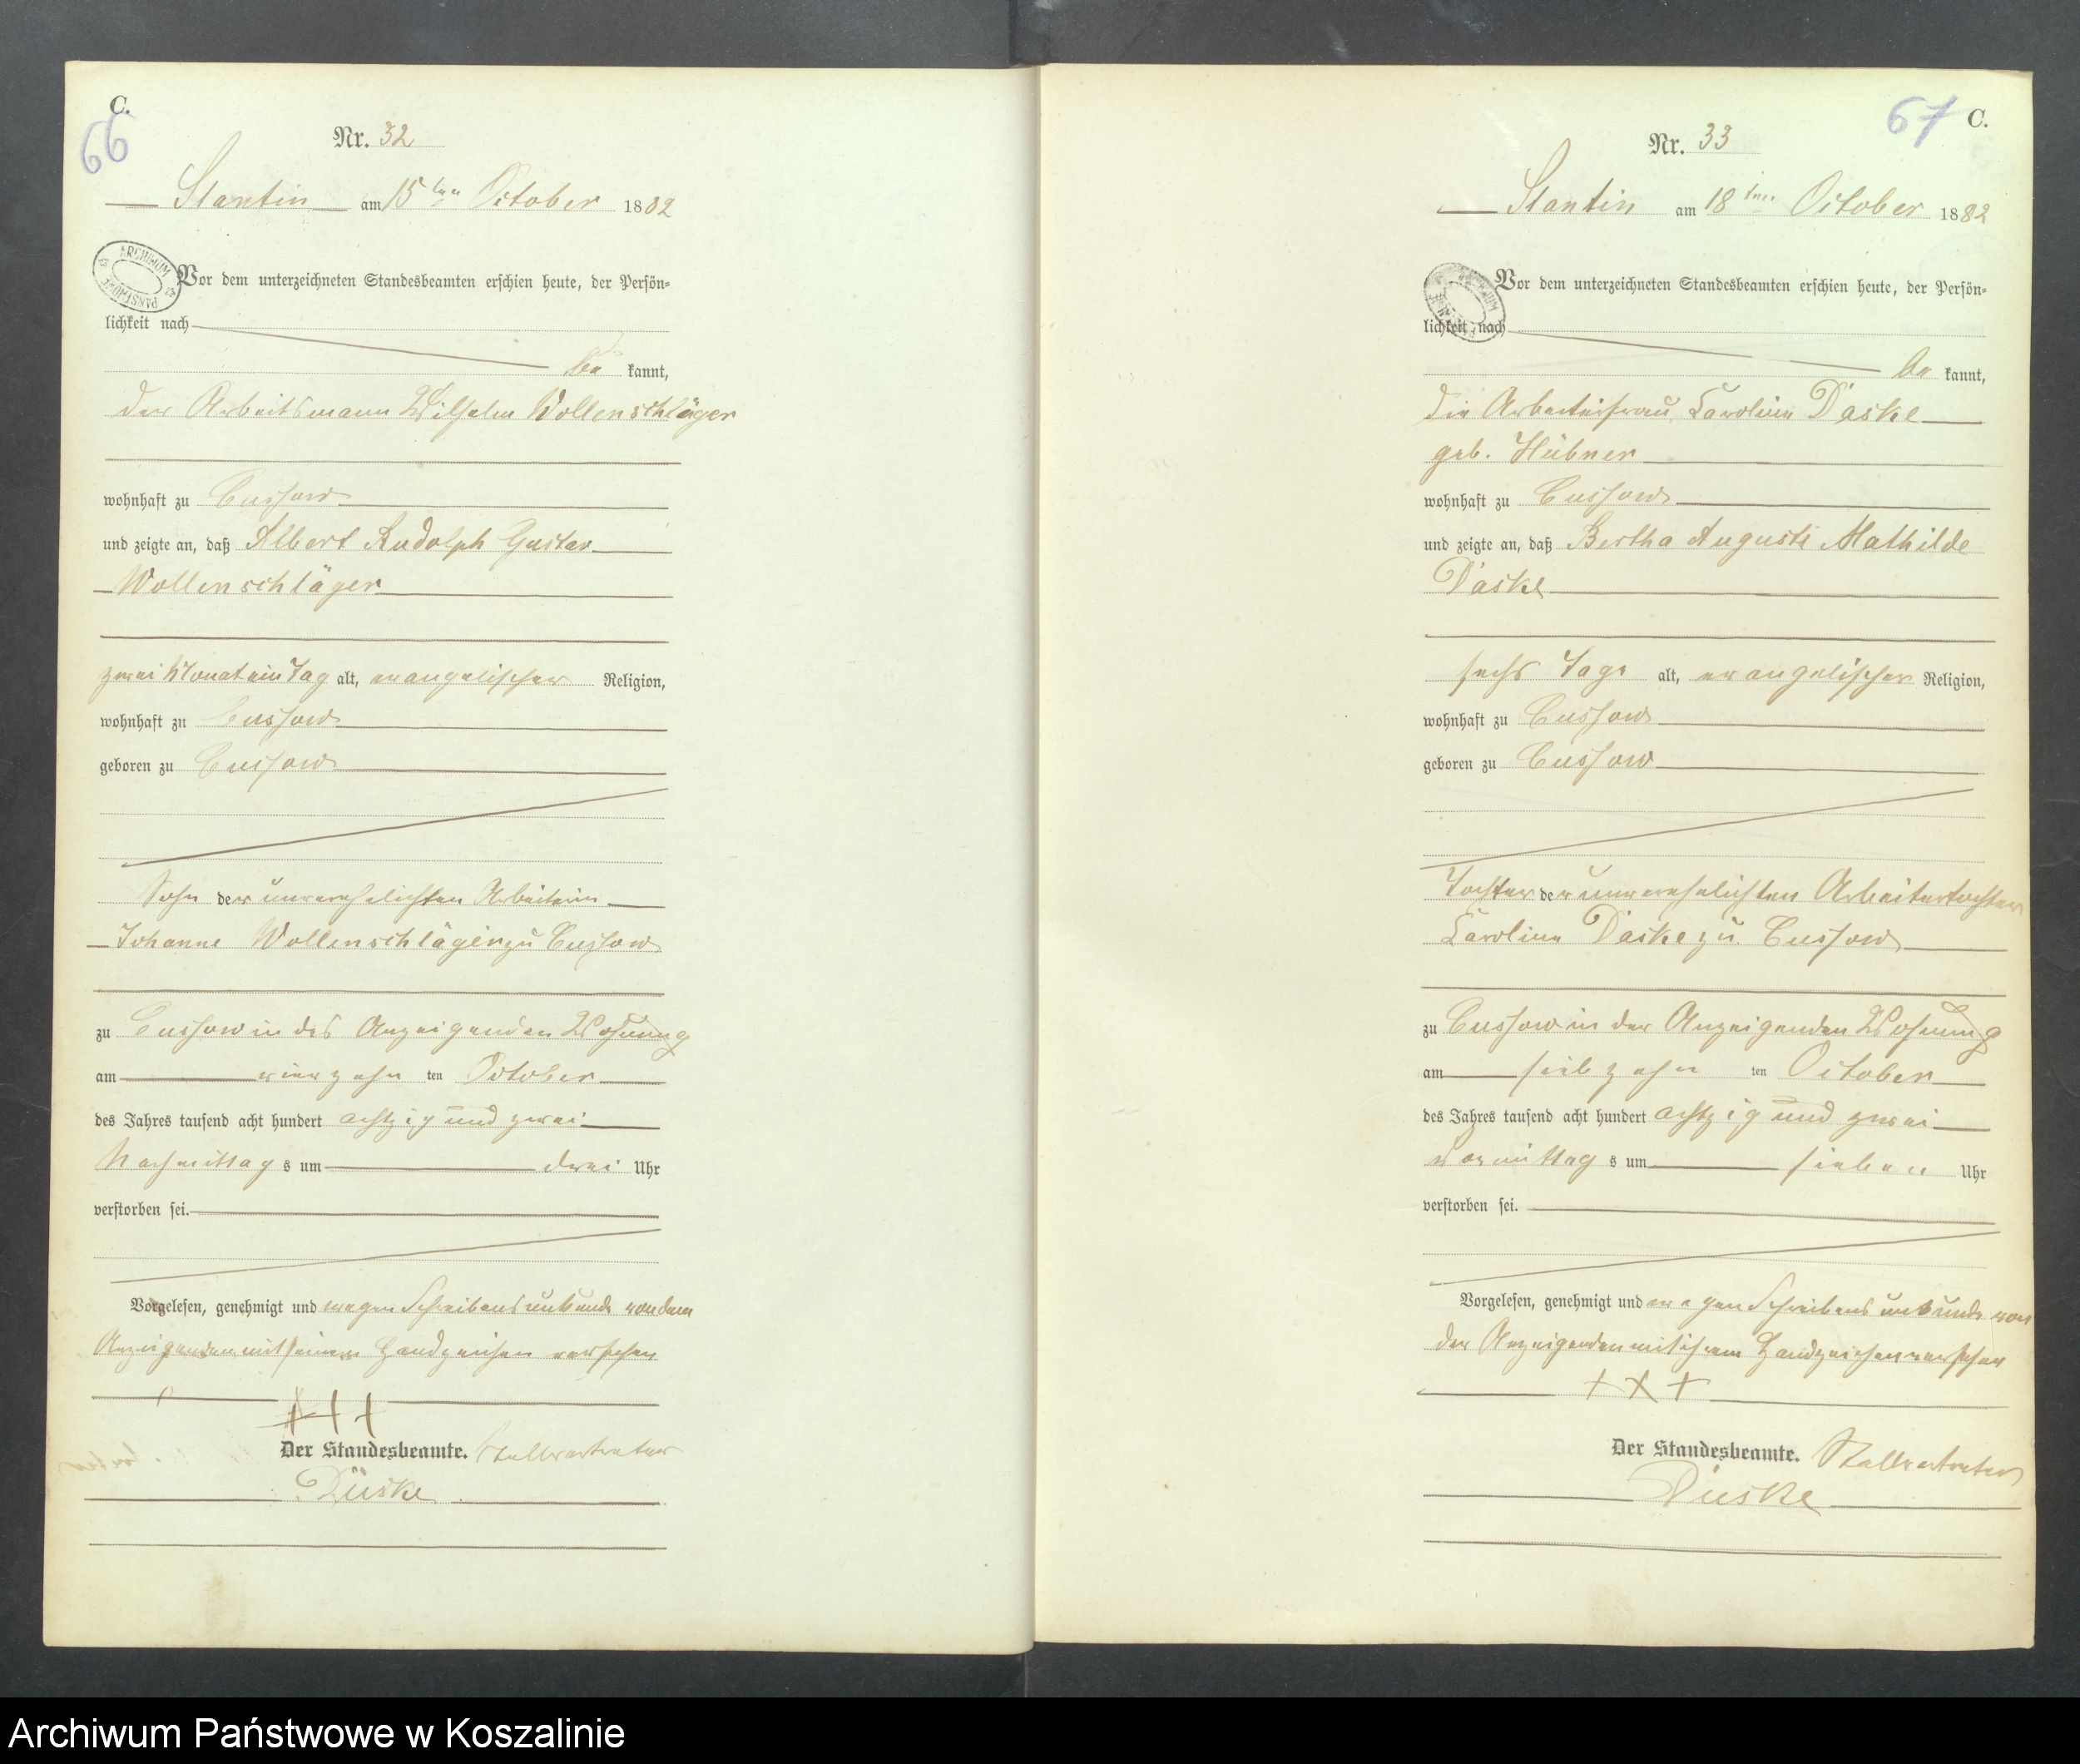 C.
66
Nr. 32
Stantin am 15ten October 1882
ARCHIWUM PAŃSTWOWE
Vor dem unterzeichneten Standesbeamten erschien heute, der Persön-
lichkeit nach
be kannt,
der Arbeitsmann Wilhelm Wollenschläger
wohnhaft zu Cussow
und zeigte an, daß Albert Rudolph Gustav
Wollenschläger
zwei Monat ein Tag alt, evangelischer Religion,
wohnhaft zu Cussow
geboren zu Cussow
Sohn der unverehelichten Arbeiterin
Johanne Wollenschläger zu Cussow
zu Cussow in des Anzeigenden Wohnung
am vierzehn ten October
des Jahres tausend acht hundert achtzig und zwei
Nachmittag s um drei Uhr
verstorben sei.
Vorgelesen, genehmigt und wegen Schreibensunkunde von dem
Anzeigenden mit seinem Handzeichen versehen
+++
Der Standesbeamte. Stellvertreter
Düske
67 C.
Nr. 33
Stantin am 18ten October 1882
Vor dem unterzeichneten Standesbeamten erschien heute, der Persön-
lichkeit nach
be kannt,
die Arbeiterfrau Caroline Däske
geb. Hübner
wohnhaft zu Cussow
und zeigte an, daß Bertha Auguste Mathilde
Däske
sechs Tage alt, evangelischer Religion,
wohnhaft zu Cussow
geboren zu Cussow
Tochter der unverehelichten Arbeitertochter
Caroline Däske zu Cussow
zu Cussow in der Anzeigenden Wohnung
am siebzehn ten October
des Jahres tausend acht hundert achtzig und zwei
Vormittag s um sieben Uhr
verstorben sei.
Vorgelesen, genehmigt und wegen Schreibensunkunde von
der Anzeigenden mit ihrem Handzeichen versehen
+++
Der Standesbeamte. Stellvertreter
Düske
Archiwum Państwowe w Koszalinie